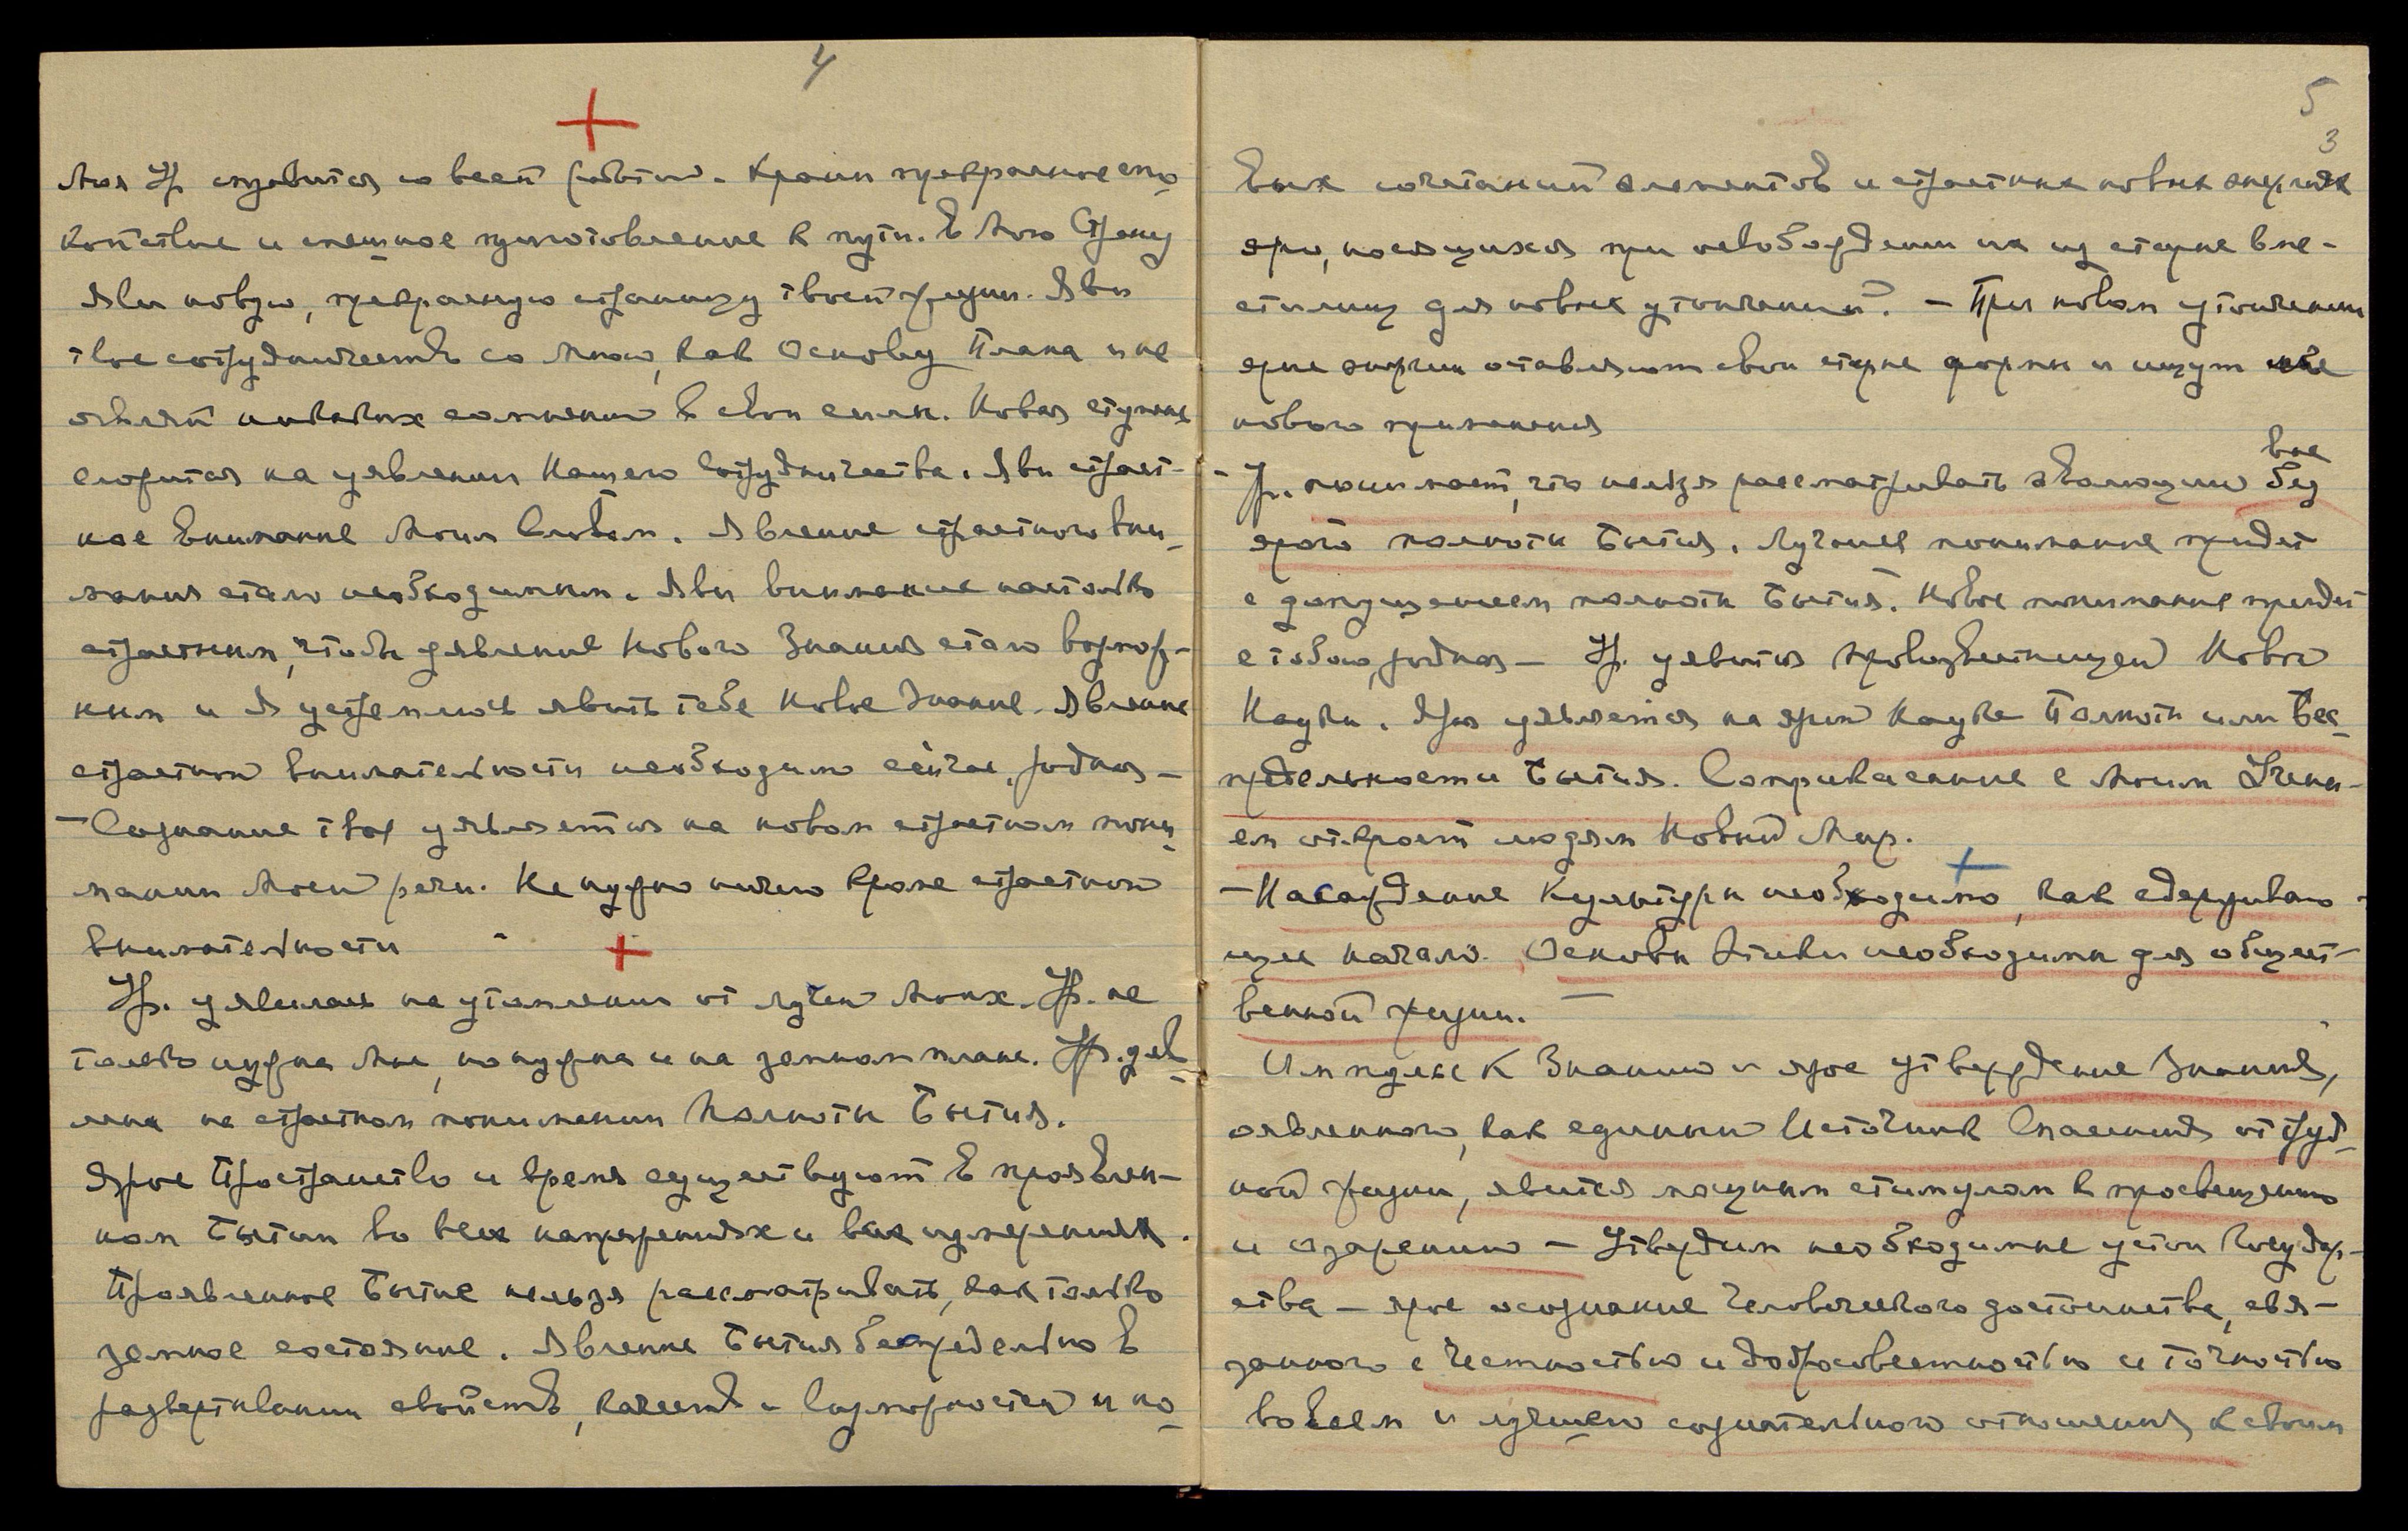 4
Моя Ур. справится со всей работой. Храни прекрасное спо-
койствие и спешное приготовление к пути. В Мою Страну
Яви новую, прекрасную страницу твоей жизни. Яви
твое сотрудничество со Мною, как Основу Плана и не
являй никаких сомнений в свои силы. Новая ступень
сложится на уявлении Нашего Сотрудничества. Яви страст-
ное внимание Моим Словам. Явление страстного вни-
мания стало необходимым. Яви внимание настолько
страстным, чтобы уявление Нового Знания стало возмож-
ным и Я устремлюсь явить тебе Новое Знание. Явление
страстной внимательности необходимо сейчас, родная –
– Сознание твое уявляется на новом страстном пони-
мании Моей речи. Не нужно ничего кроме страстной
внимательности
Ур. уявилась на утомлении от лучей Моих. Ур. не
только нужна Мне, но нужна и на земном плане. Ур. уяв-
лена на страстном понимании Полноты Бытия.
Ярое Пространство и время существуют в проявлен-
ном Бытии во всех напряжениях и всех измерениях.
Проявленное Бытие нельзя рассматривать, как только
земное состояние. Явление Бытия беспредельно в
развертывании свойств, качеств и возможностей и но-
5
3
вых сочетаний элементов и страстных новых энергиях
яро, носящихся при освобождении их из старых вме-
стилищ для новых утончений. – При новом утончении
ярые энергии оставляют свои старые формы и ищут
нового применения
– Ур. понимает, что нельзя рассматривать эволюцию вне
без
ярой полноты Бытия. Лучшее понимание придет
с допущением полноты Бытия. Новое понимание придет
с тобою, родная – Ур. уявится провозвестницей Новой
Науки. Яро уявляется на ярой Науке Полноты или Бес-
предельности Бытия. Соприкасание с Моим Учени-
ем откроет людям Новый Мир.
– Насаждение Культуры необходимо, как сдерживаю-
щее начало. Основы Этики необходимы для общест-
венной жизни. –
Импульс к Знанию и ярое утверждение Знания,
явленного, как единый Источник Спасения от труд-
ной жизни, явится мощным стимулом к просвещению
и озарению – Утвердим необходимые устои Государ-
ства – ярое осознание Человеческого достоинства, свя-
занного с Честностью и добросовестностью и точностью
во всем и лучшего сознательного отношения к своим